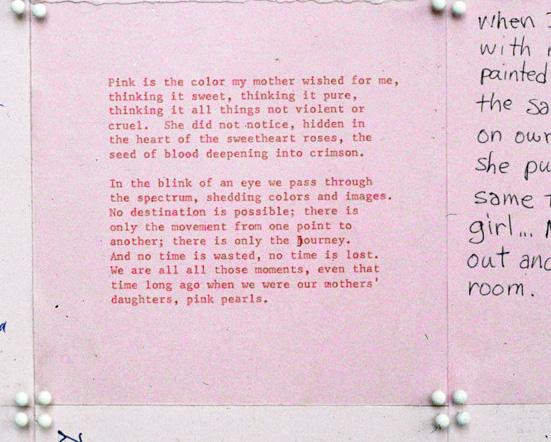 Pink is the color my mother wished for me,
thinking it sweet, thinking it pure,
thinking it all things not violent or
cruel. She did not notice, hidden in
the heart of the sweetheart roses, the
seed of blood deepening into crimson.
In the blink of an eye we pass through
the spectrum, shedding colors and images.
No destination is possible; there is
only the movement from one point to
another; there is only the journey.
And no time is wasted, no time is lost.
We are all all those moments, even that
time long ago when we were our mothers'
daughters, pink pearls.
when
with
painted
the sa
on own
she pu
same
girl...
out and
room.